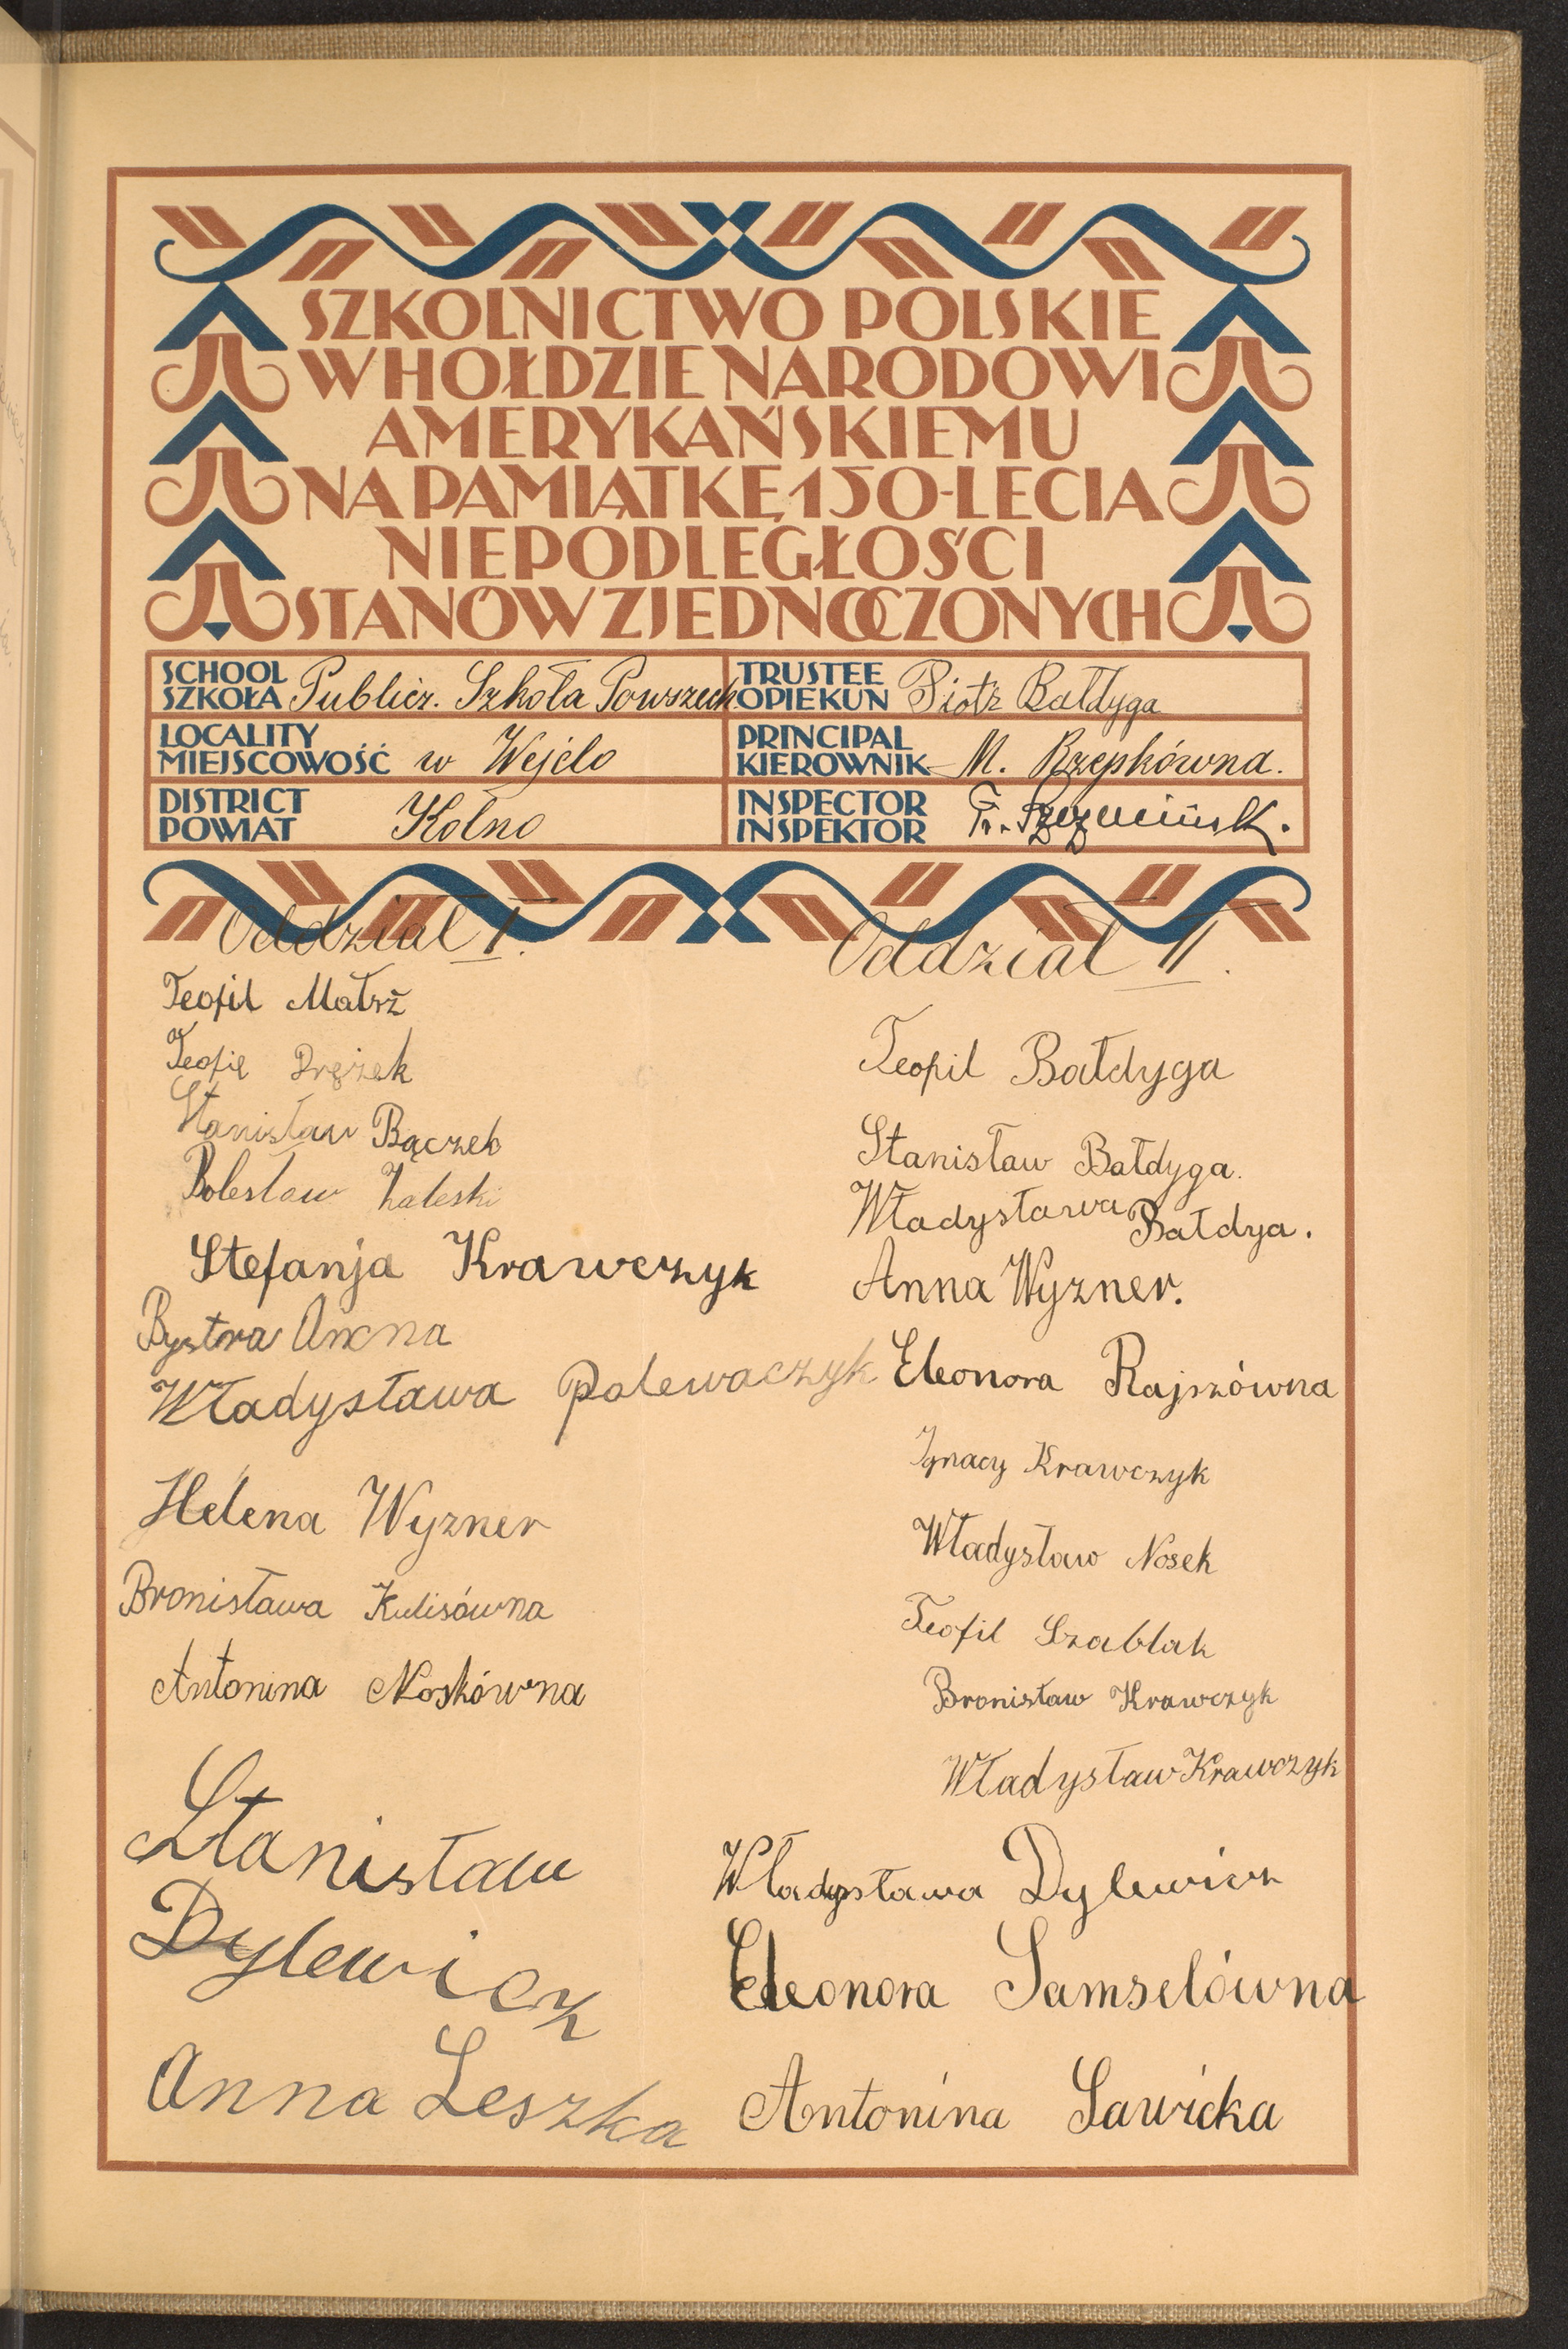 SZKOLNICTWO POLSKIE
W HOŁDZIE NARODOWI
AMERYKAŃSKIEMU
NA PAMIĄTKĘ 150-LECIA
NIEPODLEGŁOŚCI
STANÓW ZJEDNOCZONYCH
SCHOOL
SZKOŁA Publicz. Szkoła Powszech
TRUSTEE
OPIEKUN Piotr Bałdyga
LOCALITY
MIEJSCOWOŚĆ w Wejdo
PRINCIPAL
KIEROWNIK M. Rzepkówna.
DISTRICT
POWIAT Kolno
INSPECTOR
INSPEKTOR Fr.
Oddział I.
Teofil Małż
Teofil Drężek
Stanisław Bączek
Bolesław Zaleski
Stefanja Krawczyk
Bystra Anna
Władysława Polewaczyk
Helena Wyzner
Bronisława Kulisówna
Antonina Noskówna
Stanisław
Dylewicz
Anna Leszka
Oddział II.
Teofil Bałdyga
Stanisław Bałdyga.
Władysława Bałdya.
Anna Wyzner.
Eleonora Rajszówna
Ignacy Krawczyk
Władysław Nosek
Teofil Szablak
Bronisław Krawczyk
Władysław Krawczyk
Władysława Dylewicz
Eleonora Samselówna
Antonina Sawicka